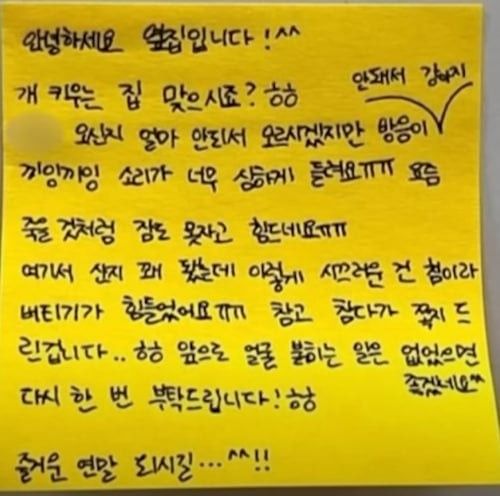 안녕하세요 옆집입니다!^^
개 키우는 집 맞으시죠? ㅎㅎ
오신지 얼마 안되서 모르시겠지만 방음이 안돼서 강아지
끼잉끼잉 소리가 너무 심하게 들려요ㅠㅠ 요즘
죽을 것처럼 잠도 못자고 힘드네요ㅠㅠ
여기서 산지 꽤 됐는데 이렇게 시끄러운 건 첨이라
버티기가 힘들었어요ㅠㅠ 참고 참다가 쪽지 드
린겁니다.. ㅎㅎ 앞으로 얼굴 붉히는 일은 없었으면 좋겠네요^^
다시 한 번 부탁드립니다!ㅎㅎ
즐거운 연말 되시길...^^!!